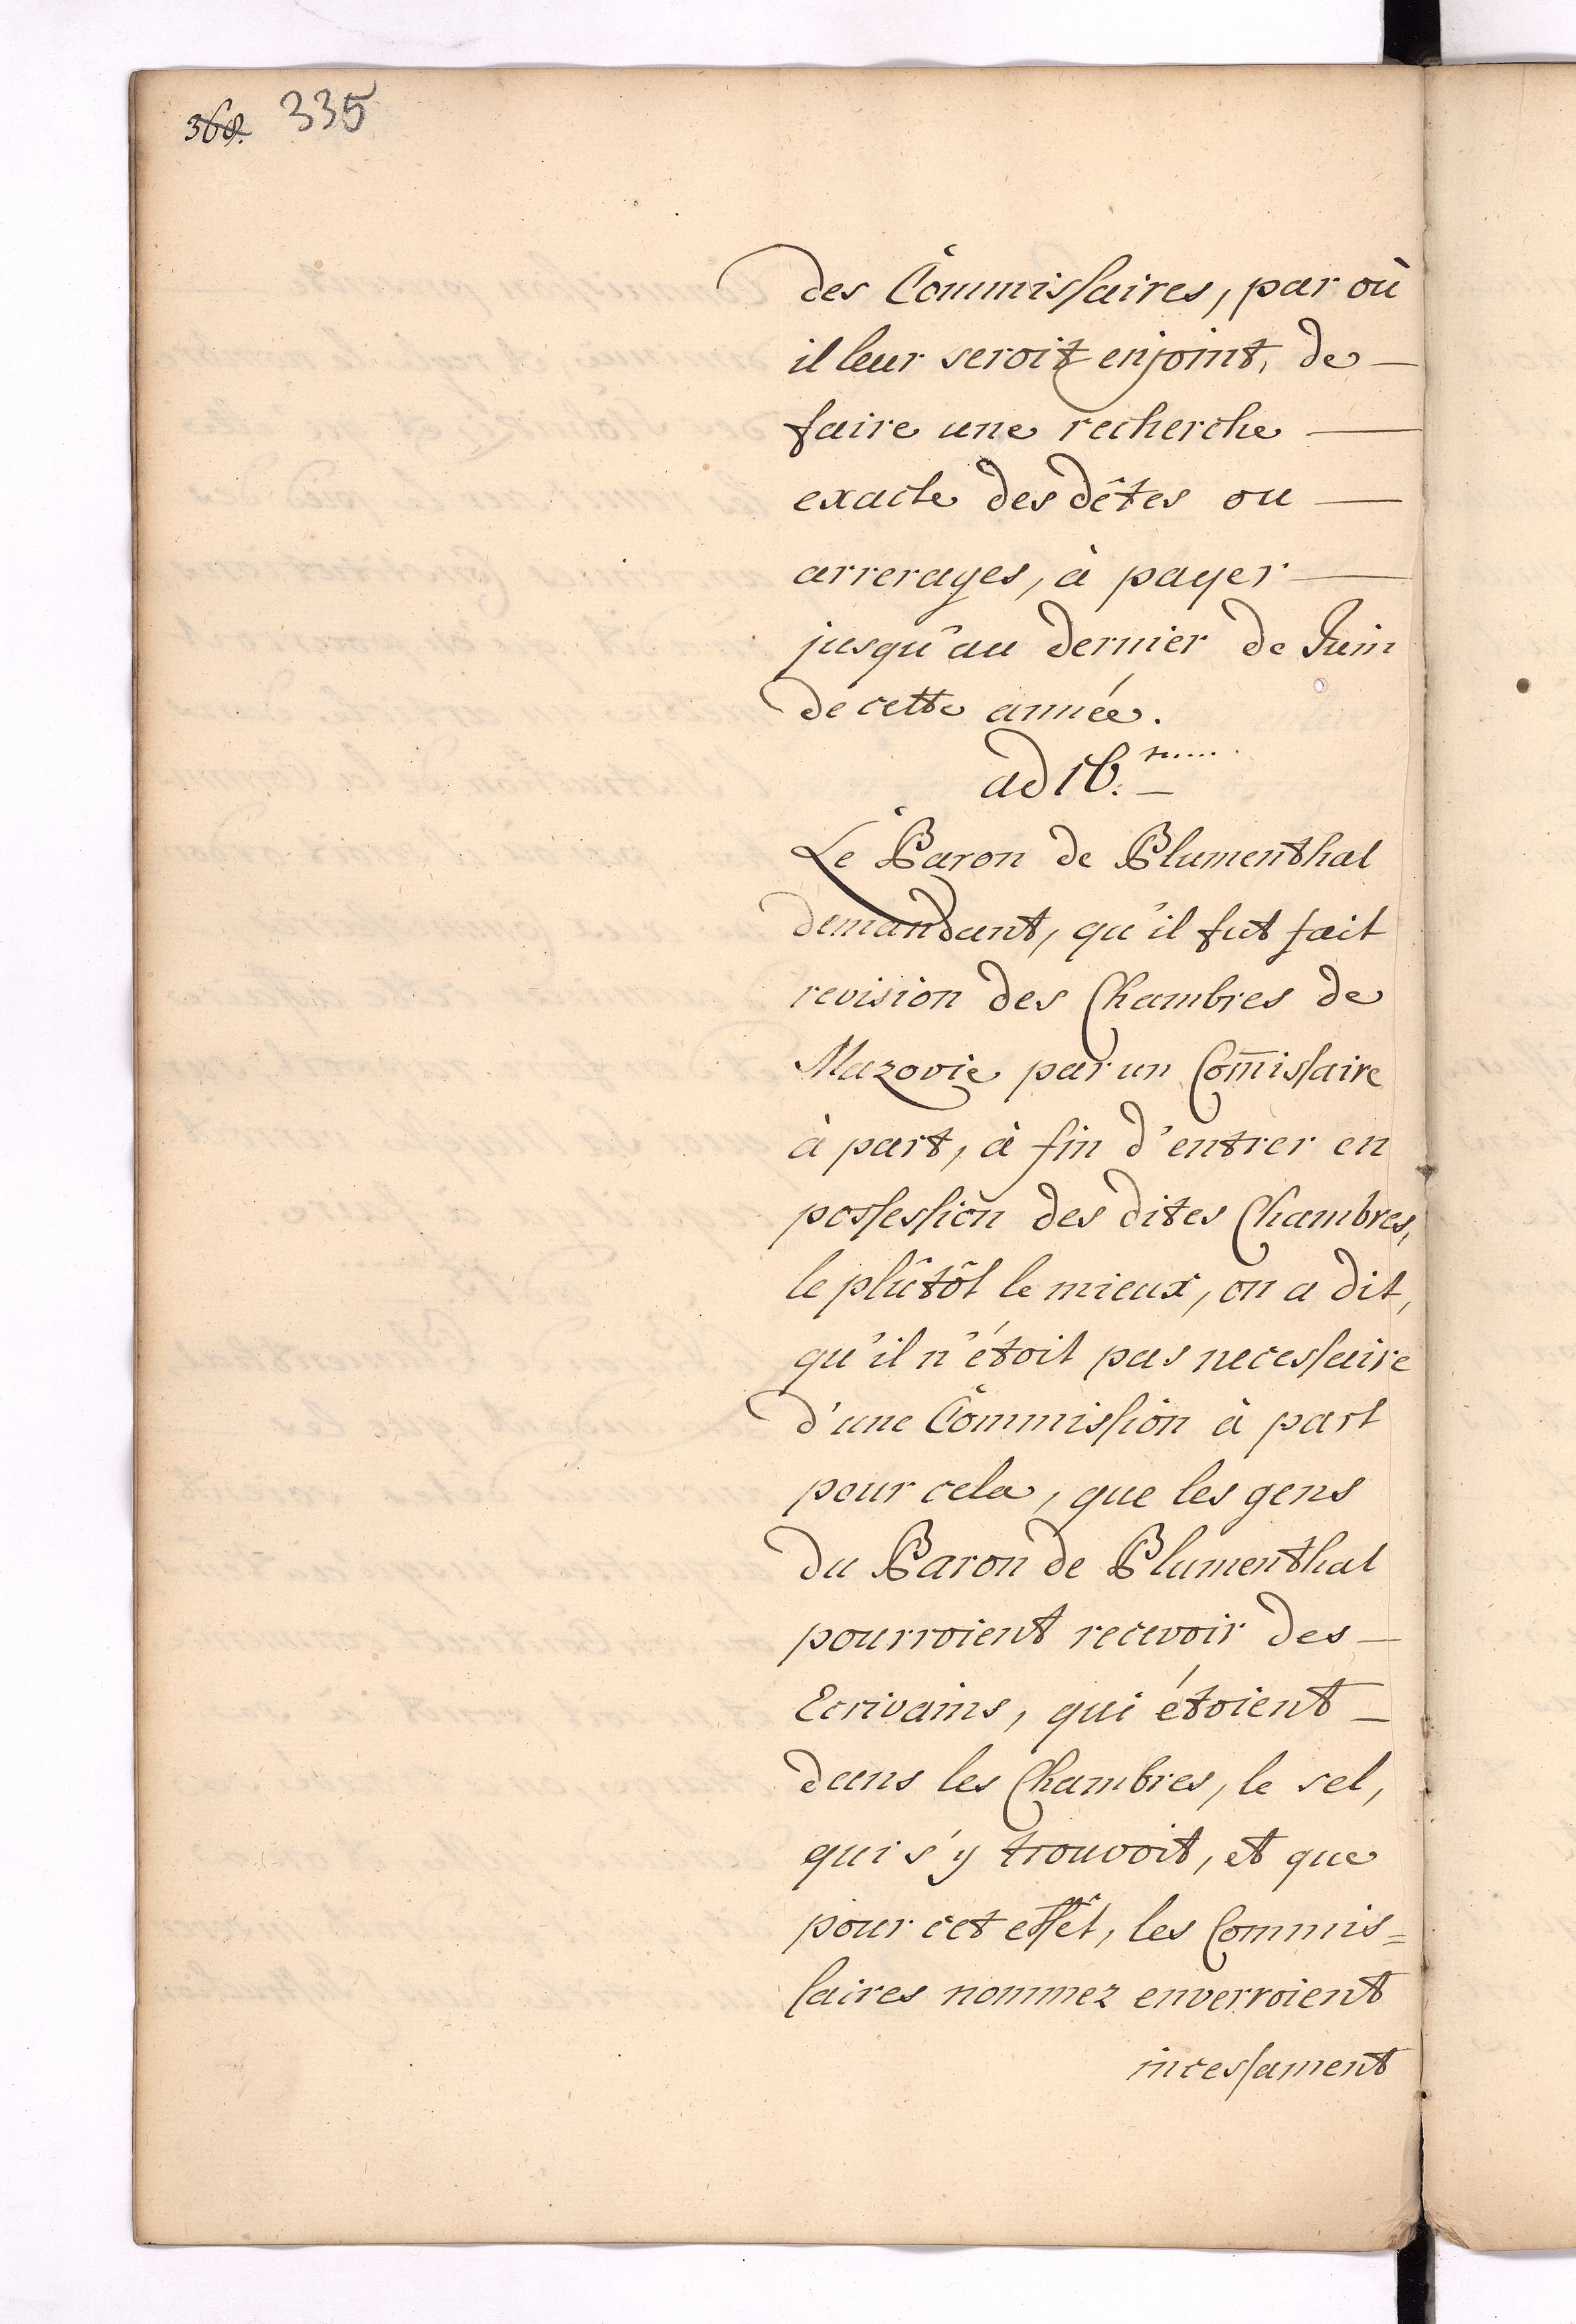 368. 335
des Commissaires, par où
il leur seroit enjoint, de —
faire une recherche —
exacte des dêtes ou —
arrerages, à payer —
jusqu'au dernier de Juin
de cette année.
ad 16.
Le Baron de Blumenthal
demandant, qu'il fut fait
revision des Chambres de
Mazovie par un Com̄issaire
à part, à fin d'entrer en
possession des dites Chambres,
le plûtôt le mieux, on a dit,
qu'il n'étoit pas necessaire
d'une Commission à part
pour cela, que les gens
du Baron de Blumenthal
pourroient recevoir des —
Ecrivains, qui étoient —
dans les Chambres, le sel,
qui s'y trouvoit, et que
pour cet effêt, les Commis=
saires nommez enverroient
incessament